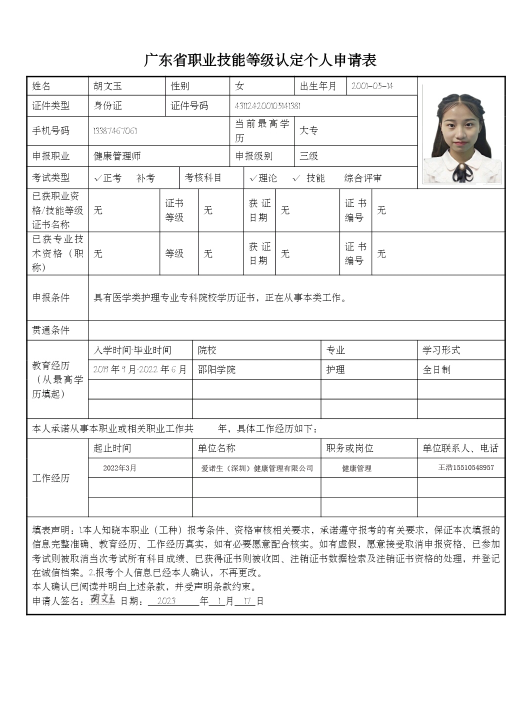 广东省职业技能等级认定个人申请表
姓名 胡文玉 性别 女 出生年月 2001-05-14
证件类型 身份证 证件号码
手机号码 当前最高学历 大专
申报职业 健康管理师 申报级别 三级
考试类型 ✓正考 补考 考核科目 ✓理论 ✓ 技能 综合评审
已获职业资格/技能等级证书名称 无 证书等级 无 获证日期 无 证书编号 无
已获专业技术资格（职称） 无 等级 无 获证日期 无 证书编号 无
申报条件 具有医学类护理专业专科院校学历证书，正在从事本类工作。
贯通条件
教育经历（从最高学历填起） 入学时间-毕业时间 院校 专业 学习形式
2019年9月-2022年6月 邵阳学院 护理 全日制
本人承诺从事本职业或相关职业工作共 年，具体工作经历如下：
工作经历 起止时间 单位名称 职务或岗位 单位联系人、电话
2022年3月 爱诺生（深圳）健康管理有限公司 健康管理 王浩15510548957
填表声明：1.本人知晓本职业（工种）报考条件、资格审核相关要求，承诺遵守报考的有关要求，保证本次填报的
信息完整准确、教育经历、工作经历真实，如有必要愿意配合核实。如有虚假，愿意接受取消申报资格、已参加
考试则被取消当次考试所有科目成绩、已获得证书则被收回、注销证书数据检索及注销证书资格的处理，并登记
在诚信档案。2.报考个人信息已经本人确认，不再更改。
本人确认已阅读并明白上述条款，并受声明条款约束。
申请人签名：胡文玉 日期： 2023 年 1 月 17 日